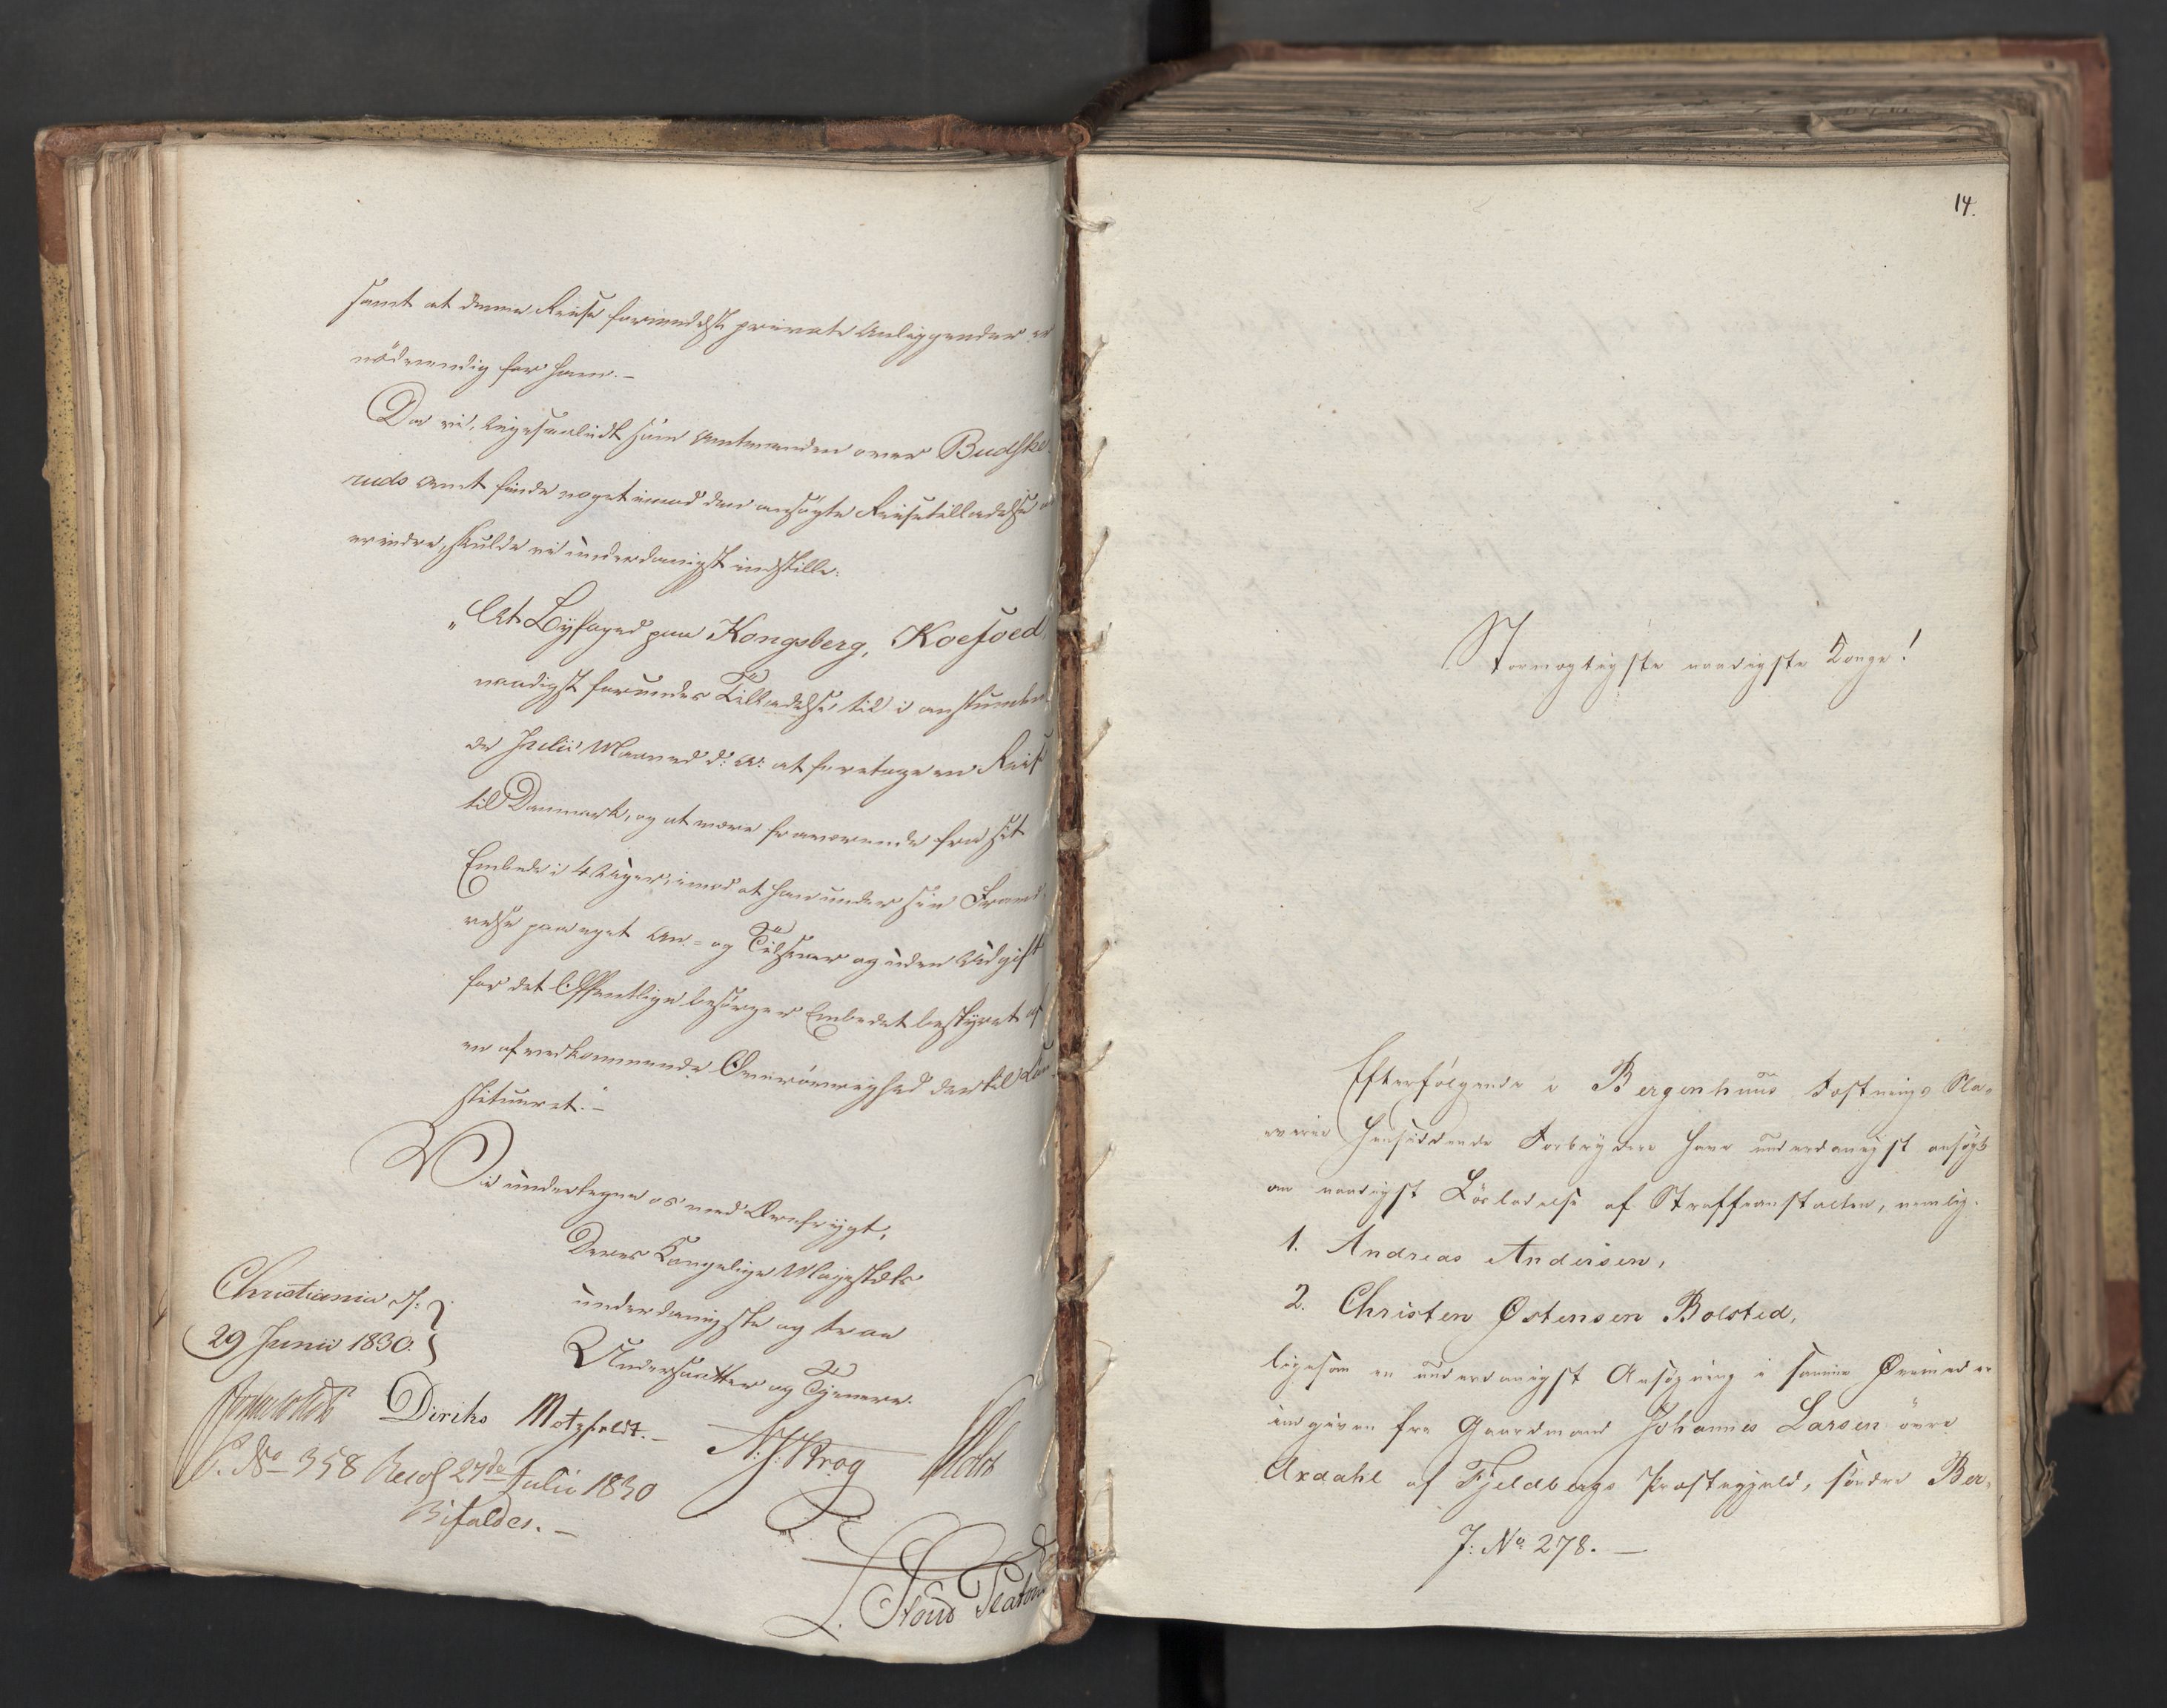 samt at denne Reise formedelst private Anliggender er
nödvendig for ham.-
Da vi, ligesaalidt som Amtmanden over Budske-
ruds Amt finde noget imod den ansögte Reisetilladelse at
erindre, skulde vi underdanigst indstille:
„At Byfoged paa Kongsberg, Koefoed,
naadigst forundes Tilladelse til i anstunden-
de Julii Maaned d: A: at foretage en Reise
til Danmark, og at være fraværende fra sit
Embede i 4 Uger, imod at han under sin Fravæ-
relse paa eget An- og Tilsvar og uden Udgift
for det Offentlige besörger Embedet bestyret af
en af vedkommende Överövrighed dertil Con-
stitueret."-
Vi undertegne os med Ærefrygt,
Deres Kongelige Majestæts
underdanigste og troe
Undersaatter og Tjenere.
Christiania d:
29 Junii 1830.
Diriks Motzfeldt.- N. J. Krog
P. No 358 Resol 27de Julii 1830
Bifaldes.-
L. Stoud Platou
14.
Stormægtigste naadigste Konge!
Efterfølgende i Bergenhuus Fæstnings Sla-
verie hensiddende Forbrydere have underdanigst ansögt
om naadigst Löslatelse af Straffeanstalten, nemlig:
1. Andreas Andersen,
2. Christen Østensen Bolsted,
ligesom en underdanigst Ansøgning i samme Øiemed er
indgiven fra Gaardmand Johannes Larsen övre
Axdahl af Fjeldbergs Præstegjeld, søndre Ber-
J: No 278.-